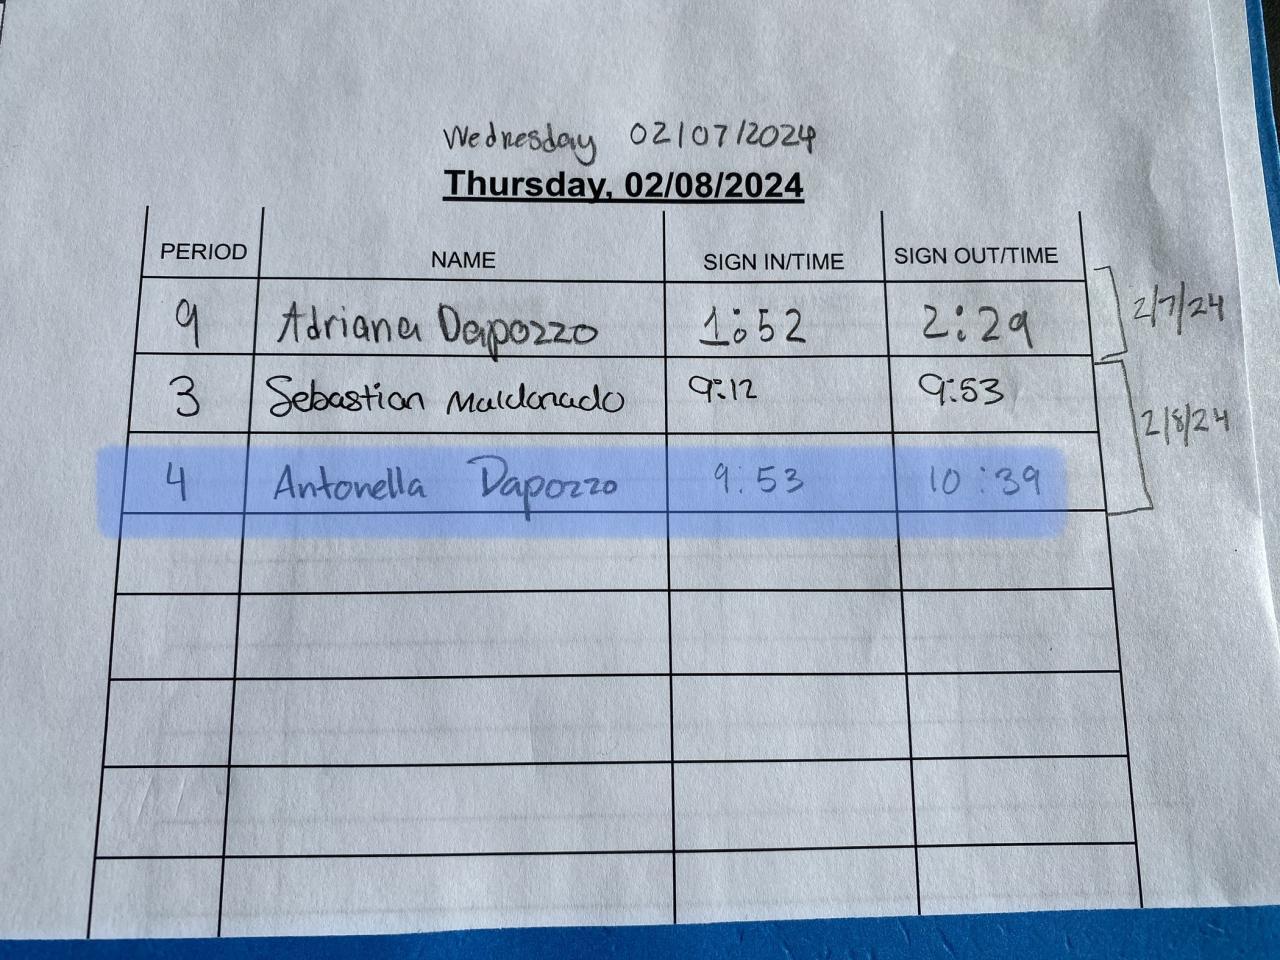 Wednesday 02/07/2024
Thursday, 02/08/2024
PERIOD NAME SIGN IN/TIME SIGN OUT/TIME
9 Adriana Dapozzo 1:52 2:29 2/7/24
3 Sebastian Maldonado 9:12 9:53
2/8/24
4 Antonella Dapozzo 9:53 10:39